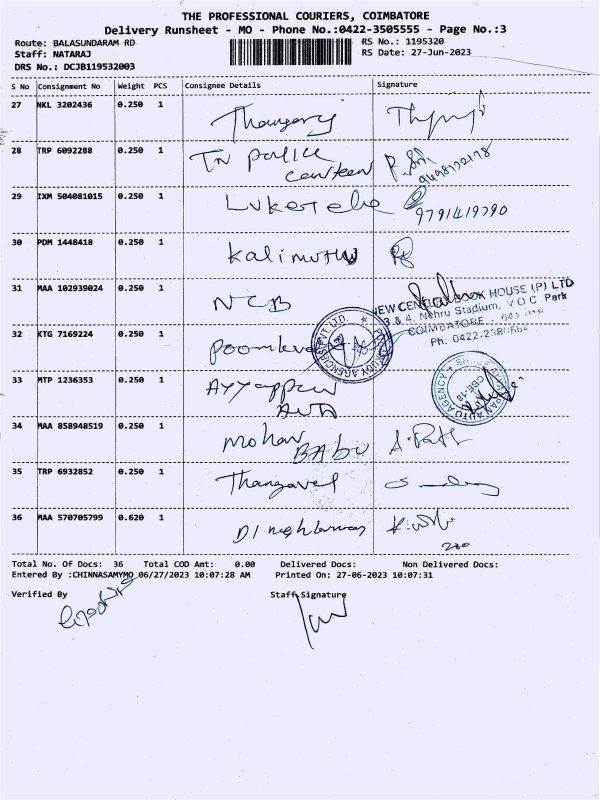 THE PROFESSIONAL COURIERS, COIMBATORE
Delivery Runsheet - MO - Phone No.:0422-3505555 - Page No.:3
Route: BALASUNDARAM RD RS No.: 1195320
Staff: NATARAJ RS Date: 27-Jun-2023
DRS No.: DCJB119532003
S No Consignment No Weight PCS Consignee Details Signature
27 NKL 3202436 0.250 1 Thangaraj
28 TRP 6092288 0.250 1 TN Police
canteen
29 IXM 504081015 0.250 1
9791419790
30 PDM 1448418 0.250 1 Kalimuthu
31 MAA 102939024 0.250 1 NCB
NEW CENTURY BOOK HOUSE (P) LTD
Nehru Stadium, V O C Park
COIMBATORE
Ph: 0422-
32 KTG 7169224 0.250 1
33 MTP 1236353 0.250 1 Ayyappan
Auto
34 MAA 858948519 0.250 1 Mohan
BABU
35 TRP 6932852 0.250 1 Thangavel
36 MAA 570705799 0.620 1
Total No. Of Docs: 36 Total COD Amt: 0.00 Delivered Docs: Non Delivered Docs:
Entered By :CHINNASAMYMO 06/27/2023 10:07:28 AM Printed On: 27-06-2023 10:07:31
Verified By Staff Signature